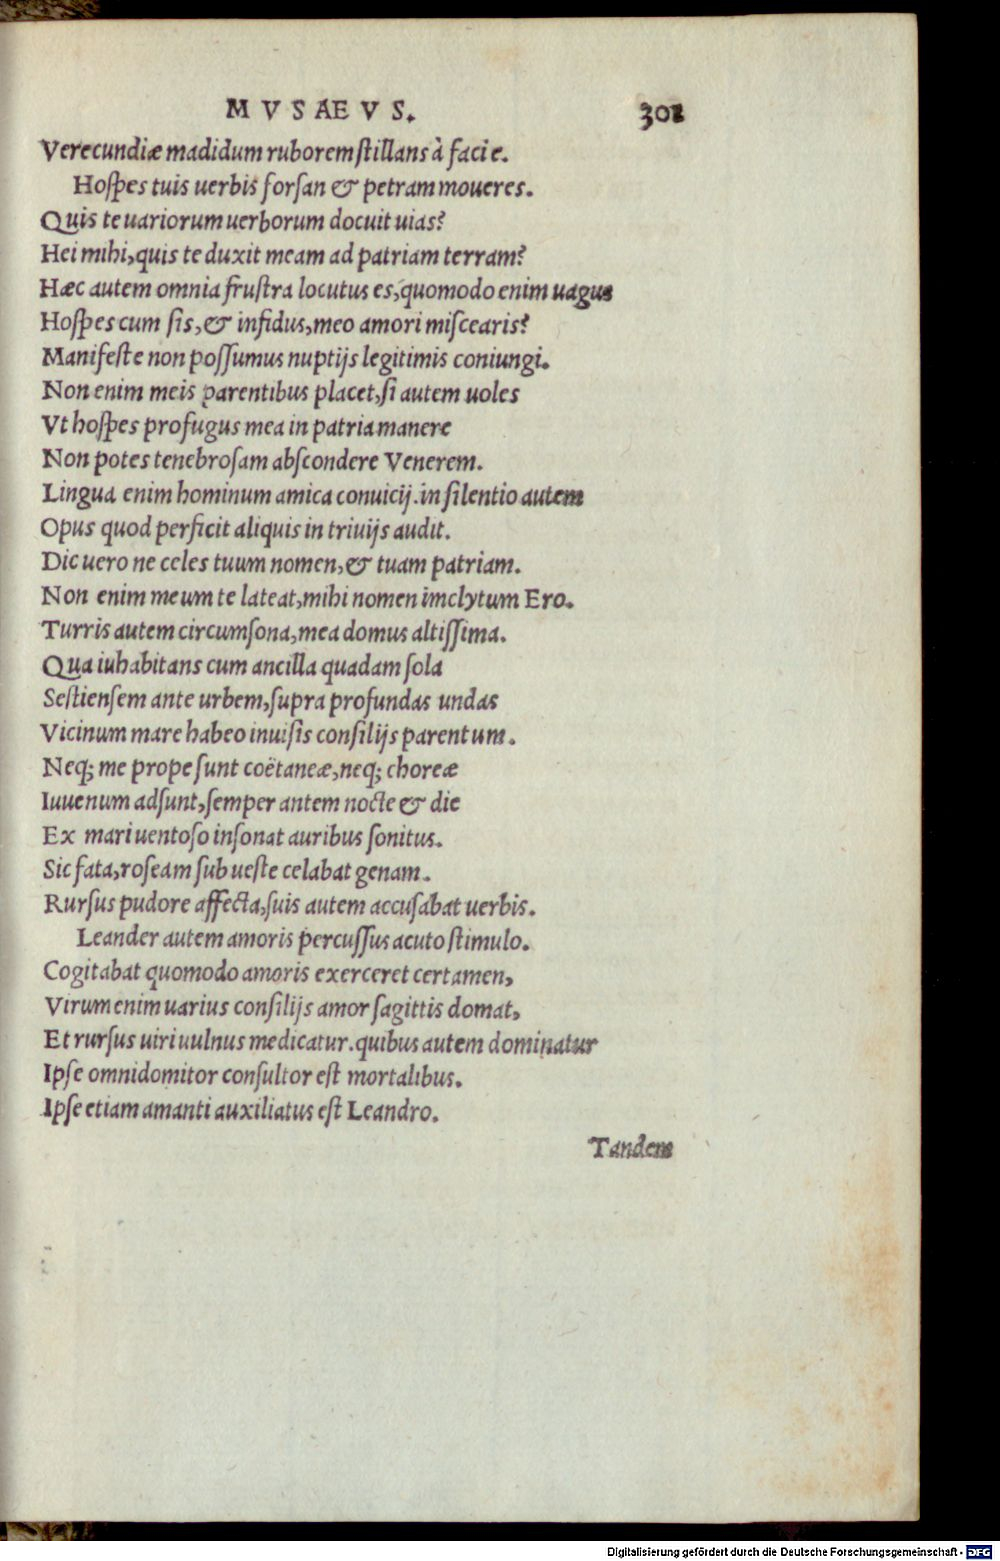 MVSAEVS. 301
Verecundiæ madidum ruborem stillans à facie.
Hospes tuis uerbis forsan & petram moueres.
Quis te uariorum uerborum docuit uias?
Hei mihi, quis te duxit meam ad patriam terram?
Hæc autem omnia frustra locutus es, quomodo enim uagus
Hospes cum sis, & infidus, meo amori miscearis?
Manifeste non possumus nuptijs legitimis coniungi.
Non enim meis parentibus placet, si autem uoles
Vt hospes profugus mea in patria manere
Non potes tenebrosam abscondere Venerem.
Lingua enim hominum amica conuicij. in silentio autem
Opus quod perficit aliquis in triuijs audit.
Dic uero ne celes tuum nomen, & tuam patriam.
Non enim meum te lateat, mihi nomen imclytum Ero.
Turris autem circumsona, mea domus altissima.
Qua iuhabitans cum ancilla quadam sola
Sestiensem ante urbem, supra profundas undas
Vicinum mare habeo inuisis consilijs parentum.
Neq; me prope sunt coëtaneæ, neq; choreæ
Iuuenum adsunt, semper antem nocte & die
Ex mari uentoso insonat auribus sonitus.
Sic fata, roseam sub ueste celabat genam.
Rursus pudore affecta, suis autem accusabat uerbis.
Leander autem amoris percussus acuto stimulo.
Cogitabat quomodo amoris exerceret certamen,
Virum enim uarius consilijs amor sagittis domat,
Et rursus uiri uulnus medicatur. quibus autem dominatur
Ipse omnidomitor consultor est mortalibus.
Ipse etiam amanti auxiliatus est Leandro.
Tandem
Digitalisierung gefördert durch die Deutsche Forschungsgemeinschaft - DFG